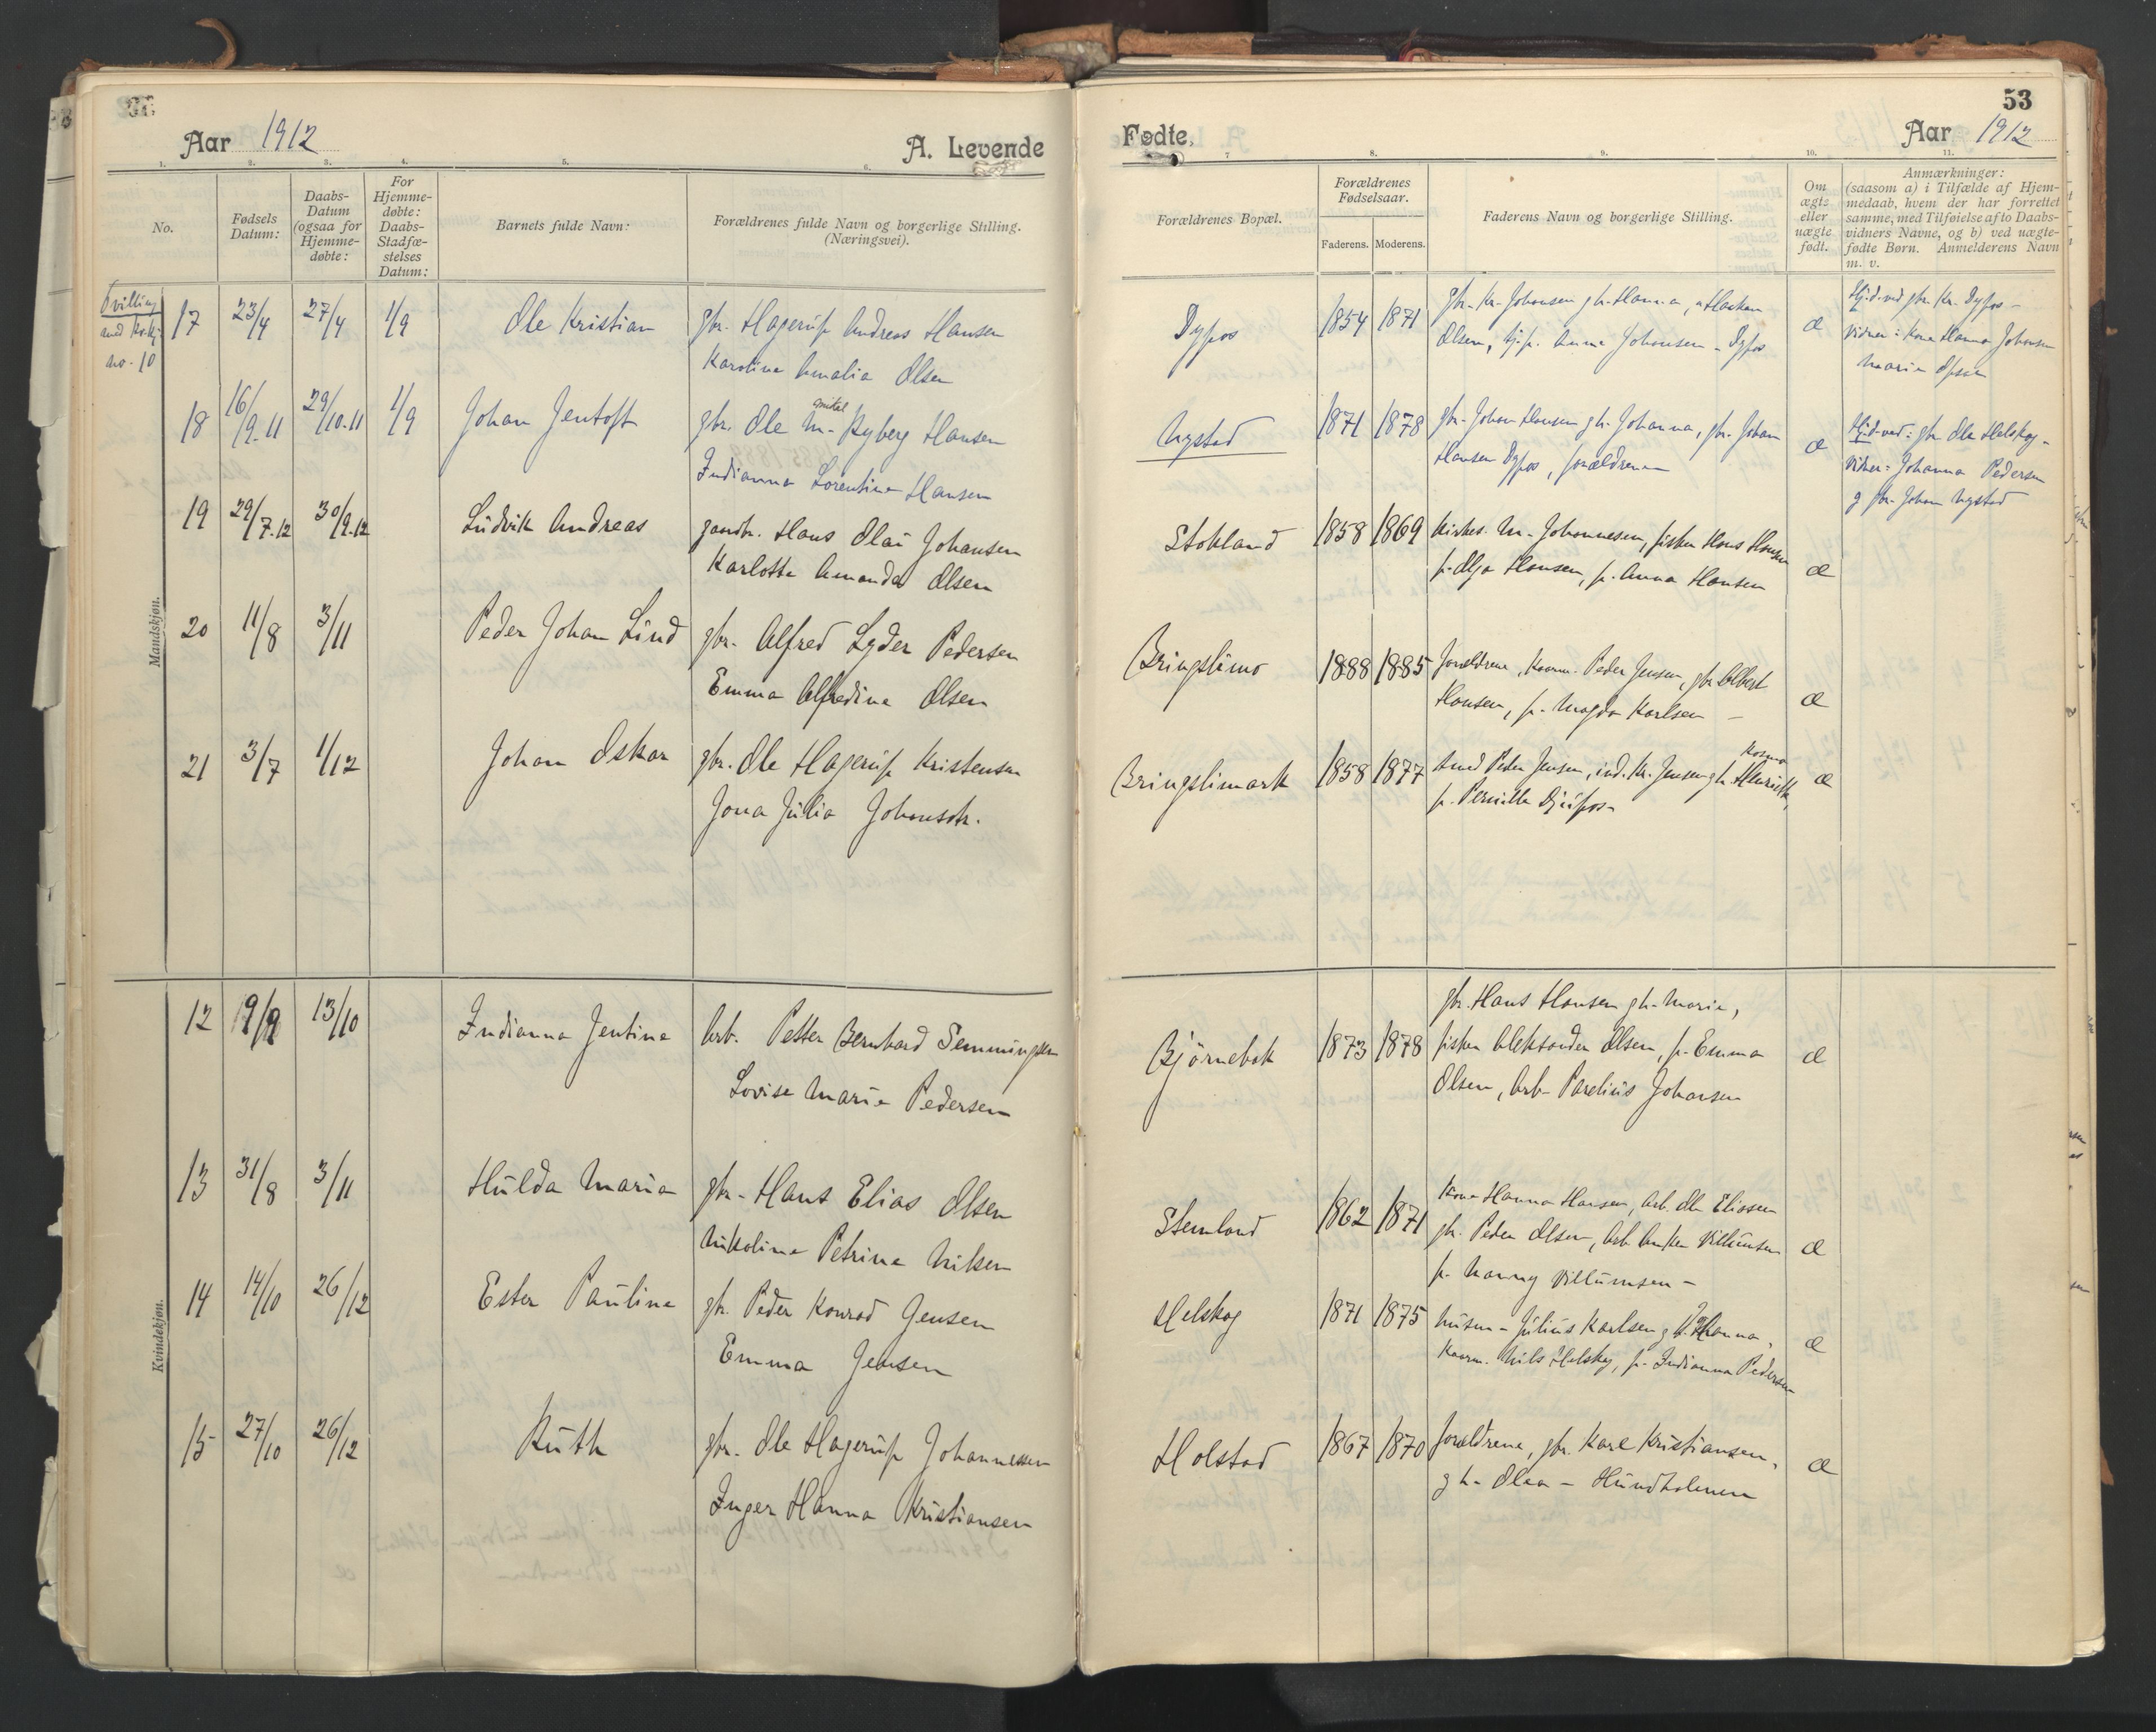 Aar 1912
A. Levende
1. 2. 3. 4. 5. 6.
No.
Fødsels
Datum:
Daabs-
Datum
(ogsaa for
Hjemme-
døbte:
For
Hjemme-
døbte:
Daabs-
Stadfæ-
stelses
Datum:
Barnets fulde Navn:
Forældrenes fulde Navn og borgerlige Stilling.
(Næringsvei).
Mandskjøn.
Tvilling
med kvkj.
no. 10
17 23/4 27/4 1/9 Ole Kristian gbr. Hagerup Andreas Hansen
Karoline Amalia Olsen
18 16/9-11 29/10-11 1/9 Johan Jentoft gbr. Ole M. Ryberg Hansen
Indianna Lorentine Hansen
19 29/7.12 30/9.12 Ludvik Andreas gaardbr. Hans Olai Johansen
Karlotte Amanda Olsen
20 11/8 3/11 Peder Johan Lind gbr. Alfred Lyder Pedersen
Emma Alfredine Olsen
21 3/7 1/12 Johan Oskar gbr. Ole Hagerup Kristensen
Jona Julia Johansdtr.
Kvindekjøn.
12 19/9 13/10 Indianna Jentine Arb. Petter Bernhard Semmingsen
Lovise Marie Pedersen
13 31/8 3/11 Hulda Maria gbr. Hans Elias Olsen
Nikoline Petrine Nilsen
14 14/10 26/12 Ester Pauline gbr. Peder Konrad Jensen
Emma Jensen
15 27/10 26/12 Ruth gbr. Ole Hagerup Johannessen
Inger Hanna Kristiansen
53
Fødte.
Aar 1912
7 8. 9. 10. 11.
Forældrenes Bopæl.
Forældrenes
Fødselsaar.
Faderens. Moderens.
Faderens Navn og borgerlige Stilling.
Om
ægte
eller
uægte
født.
Anmærkninger:
(saasom a) i Tilfælde af Hjem-
medaab, hvem der har forrettet
samme, med Tilføielse af to Daabs-
vidners Navne, og b) ved uægte-
fødte Børn. Anmelderens Navn
m. v.
Dypos 1854 1871 gbr. Kr. Johansen gh. Hanna, Haakon
Olsen, tj.p. Anna Johansen - Dypos
æ
Hj.d. ved gbr. Kr. Dypos -
Vidner: Kone Hanna Johansen
Marie Olsen
Nystad 1871 1878 gbr. Johan Hansen gh. Johanna, gbr. Johan
Hansen Dypos, forældrene
æ
Hj.d. ved: gbr Ole Helskog -
Vidner: Johanna Pedersen
og gbr. Johan Nystad
Stokland 1858 1869 Kirkes. M. Johannesen, fisker Hans Hansen
p. Olga Hansen, p. Anna Hansen
æ
Bringslimo 1888 1885 Forældrene, Kaarm. Peder Jensen, gbr Albert
Hansen, p. Magda Karlsen -
æ
Bringslimark 1858 1877 Peder Jensen, ind. Kr. Jensen gh. Henrikke,
p. Pernille Djupos-
æ
gbr. Hans Hansen gh. Marie,
Bjørnebak 1873 1878 fisker Aleksander Olsen, p. Emma
Olsen, Arb. Parelius Johansen
æ
Stemland 1862 1871 Kone Hanna Hansen, Arb. Ole Eliasen
gbr. Peder Olsen, Arb. Anker Villumsen
p. Nanny Villumsen -
æ
Helskog 1871 1875 husm. Julius Karlsen gh. Johanna,
Kaarm. Nils Helskog, p. Indianna Pedersen
æ
Holstad 1867 1870 forældrene, gbr. Karl Kristiansen,
gh. Olea - Hundholmen
æ